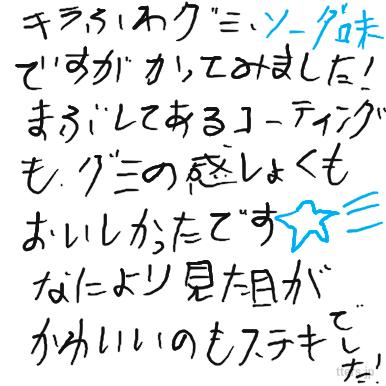 キラふわグミ、ソーダ味
ですがかってみました!
まぶしてあるコーティング
も、グミの感しょくも
おいしかったです☆彡
なにより見た目が
かわいいのもステキで
した!